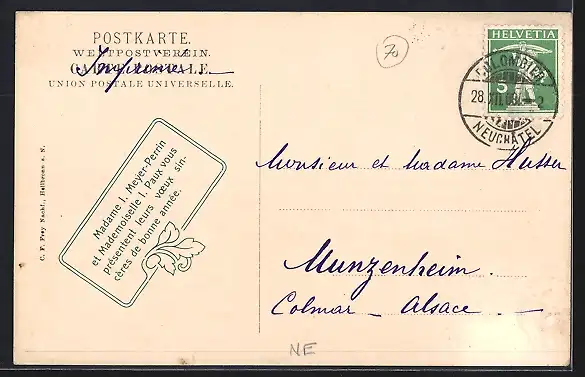 POSTKARTE.
WELTPOSTVEREIN.
CARTE POSTALE.
Imprimé.
UNION POSTALE UNIVERSELLE.
C. F. Frey Nachf., Heilbronn a. N.
Madame I. Meyer-Perrin
et Mademoiselle I. Paux vous
présentent leurs vœux sin-
cères de bonne année.
70
HELVETIA
5
COLOMBIER
NEUCHÂTEL
Monsieur et Madame Husser
Munzenheim.
Colmar - Alsace. -
NE